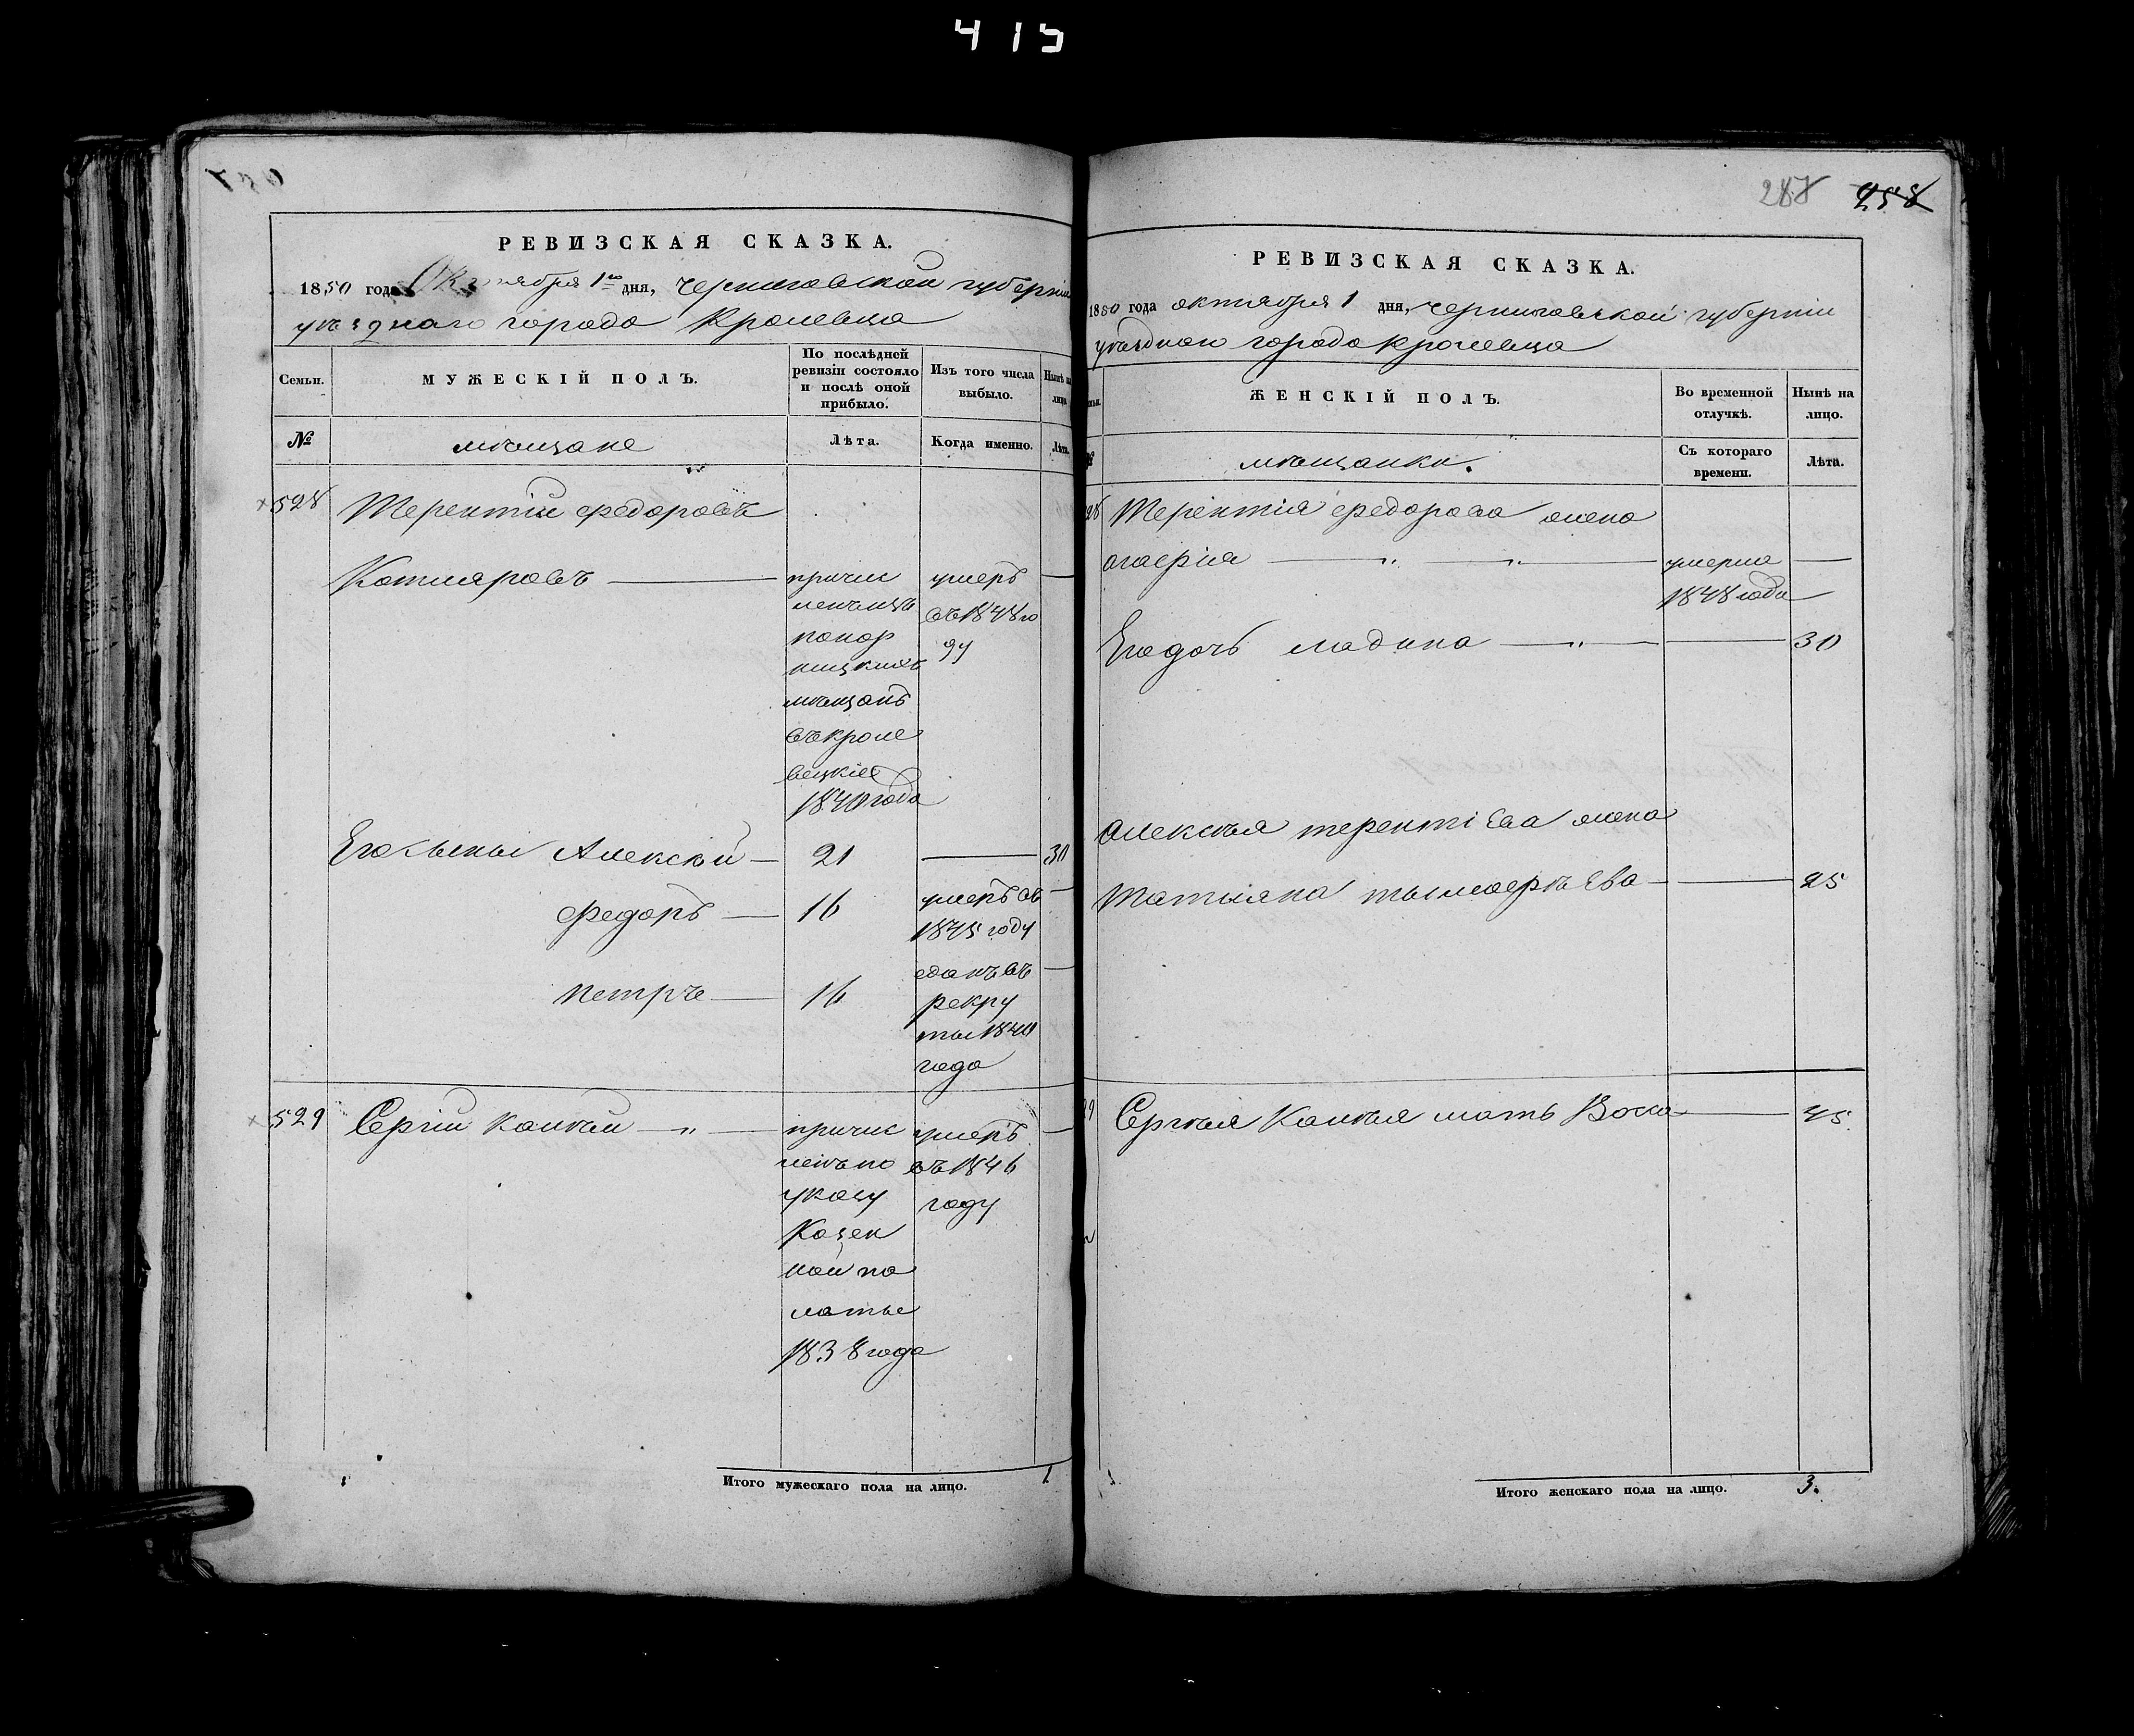 415
РЕВИЗСКАЯ СКАЗКА.
1850 года Октября 1го дня, черниговской губерніи
уѣзднаго города Кролевца
Семьи.
МУЖЕСКІЙ ПОЛЪ.
По послѣдней ревизіи состояло и послѣ оной прибыло.
Изъ того числа выбыло.
Нынѣ на лицо
№
мѣщане
Лѣта.
Когда именно.
Лѣта.
528 Терентій федоровъ
Котляровъ — причис умеръ —
ленъизъ въ1848го
понор ду
ницкихъ
мѣщанъ
въкроле
вецкіе
1840года
Его сыны Алексѣй — 21 — 30
федоръ — 16 умеръ въ —
1845 году
петръ — 16 сданъ въ —
рекру
ты 1840
года
529 Сергій — „ — причис умеръ —
ленъ по въ 1846
указу году
Казен
ной па
латы
1838 года
Итого мужескаго пола на лицо. 1
288 258
РЕВИЗСКАЯ СКАЗКА.
1850 года октября 1 дня, черниговской губерніи
уѣзднаго города кролевца
ЖЕНСКІЙ ПОЛЪ.
Во временной отлучкѣ.
Нынѣ на лицо.
№
мѣщанки.
Съ котораго времени.
Лѣта.
28 Терентія федорова жена
— „ — „ — умерла —
1848 года
Егодочь — „ — — 30
Алексѣя терентіева жена
Татіяна — — 25
29 Сергѣя мать — 45
Итого женскаго пола на лицо. 3.